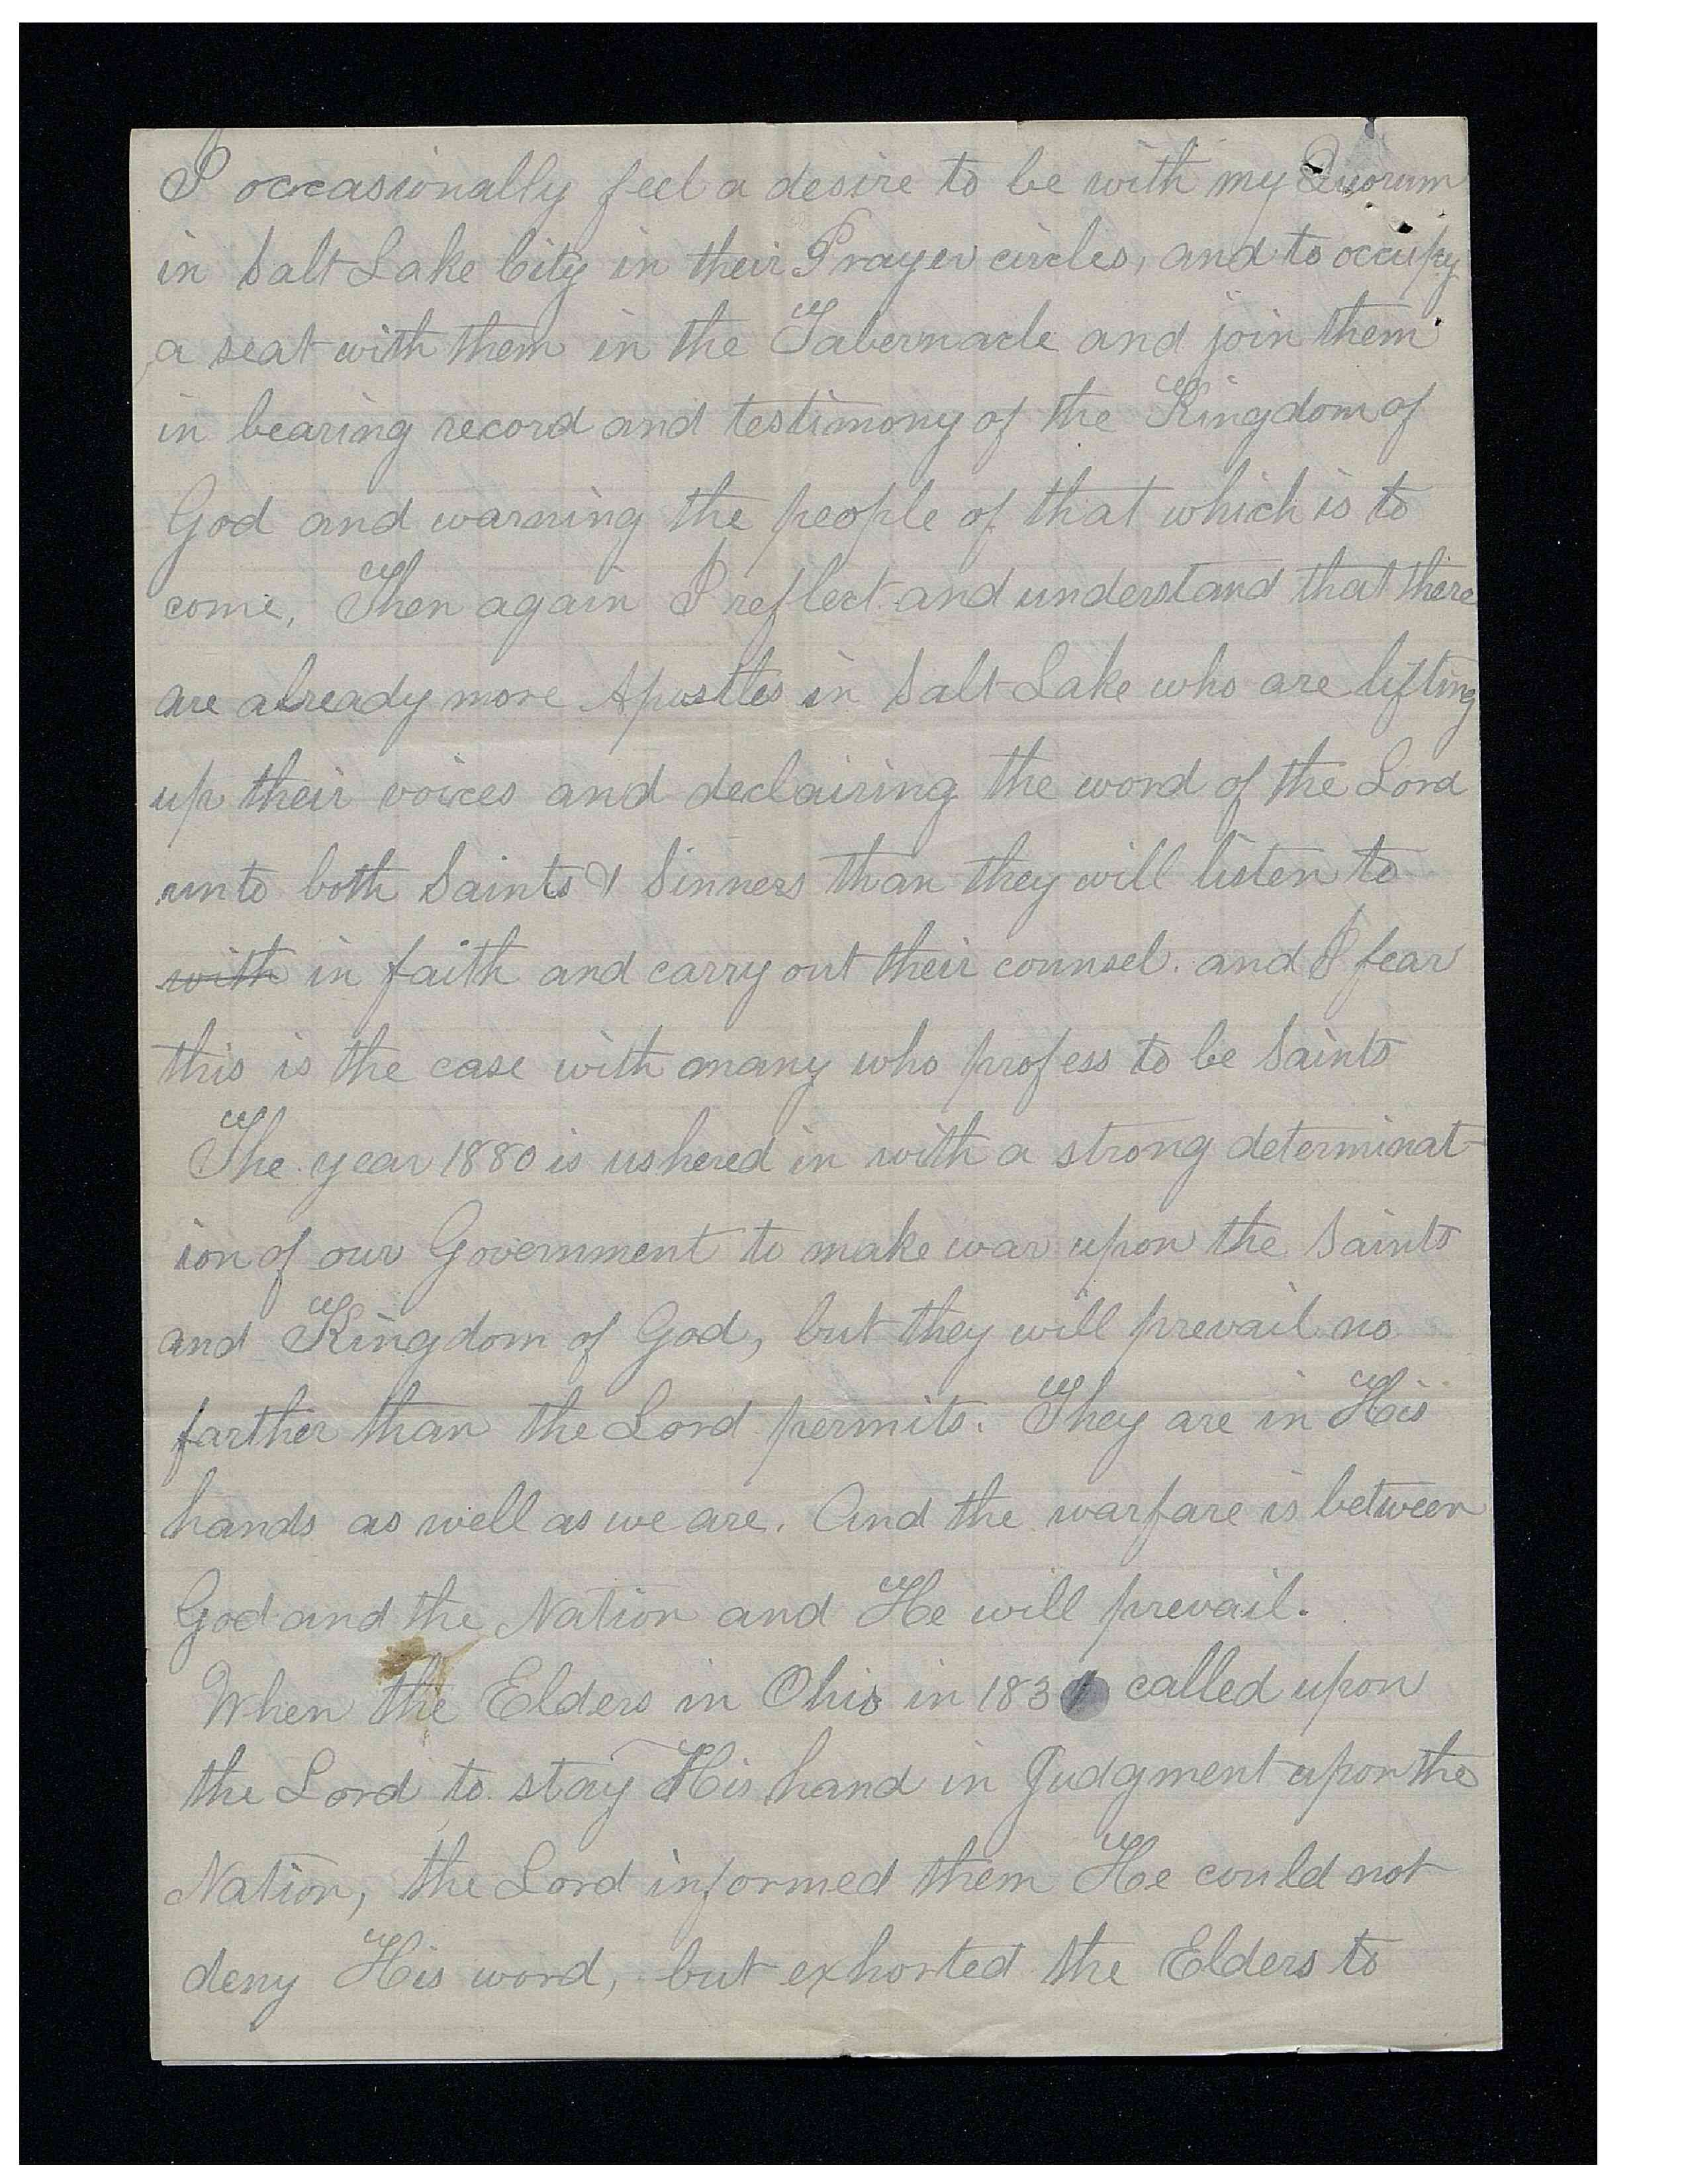 I occasionally feel a desire to be with my Quorum
in Salt Lake City in their Prayer circles, and to occupy
a seat with them in the Tabernacle and join them
in bearing record and testimony of the Kingdom of
God and warning the people of that which is to
come, Then again I reflect and understand that there
are already more Apostles in Salt Lake who are lifting
up their voices and declairing the word of the Lord
unto both Saints & Sinners than they will listen to
with in faith and carry out their counsel. and I fear
this is the case with many who profess to be Saints
The year 1880 is ushered in with a strong determinat-
ion of our Government to make war upon the Saints
and Kingdom of God, but they will prevail no
farther than the Lord permits. They are in His
hands as well as we are. And the warfare is between
God and the Nation and He will prevail.
When the Elders in Ohio in 1831 called upon
the Lord to stay His hand in Judgment upon the
Nation, the Lord informed them He could not
deny His word, but exhorted the Elders to